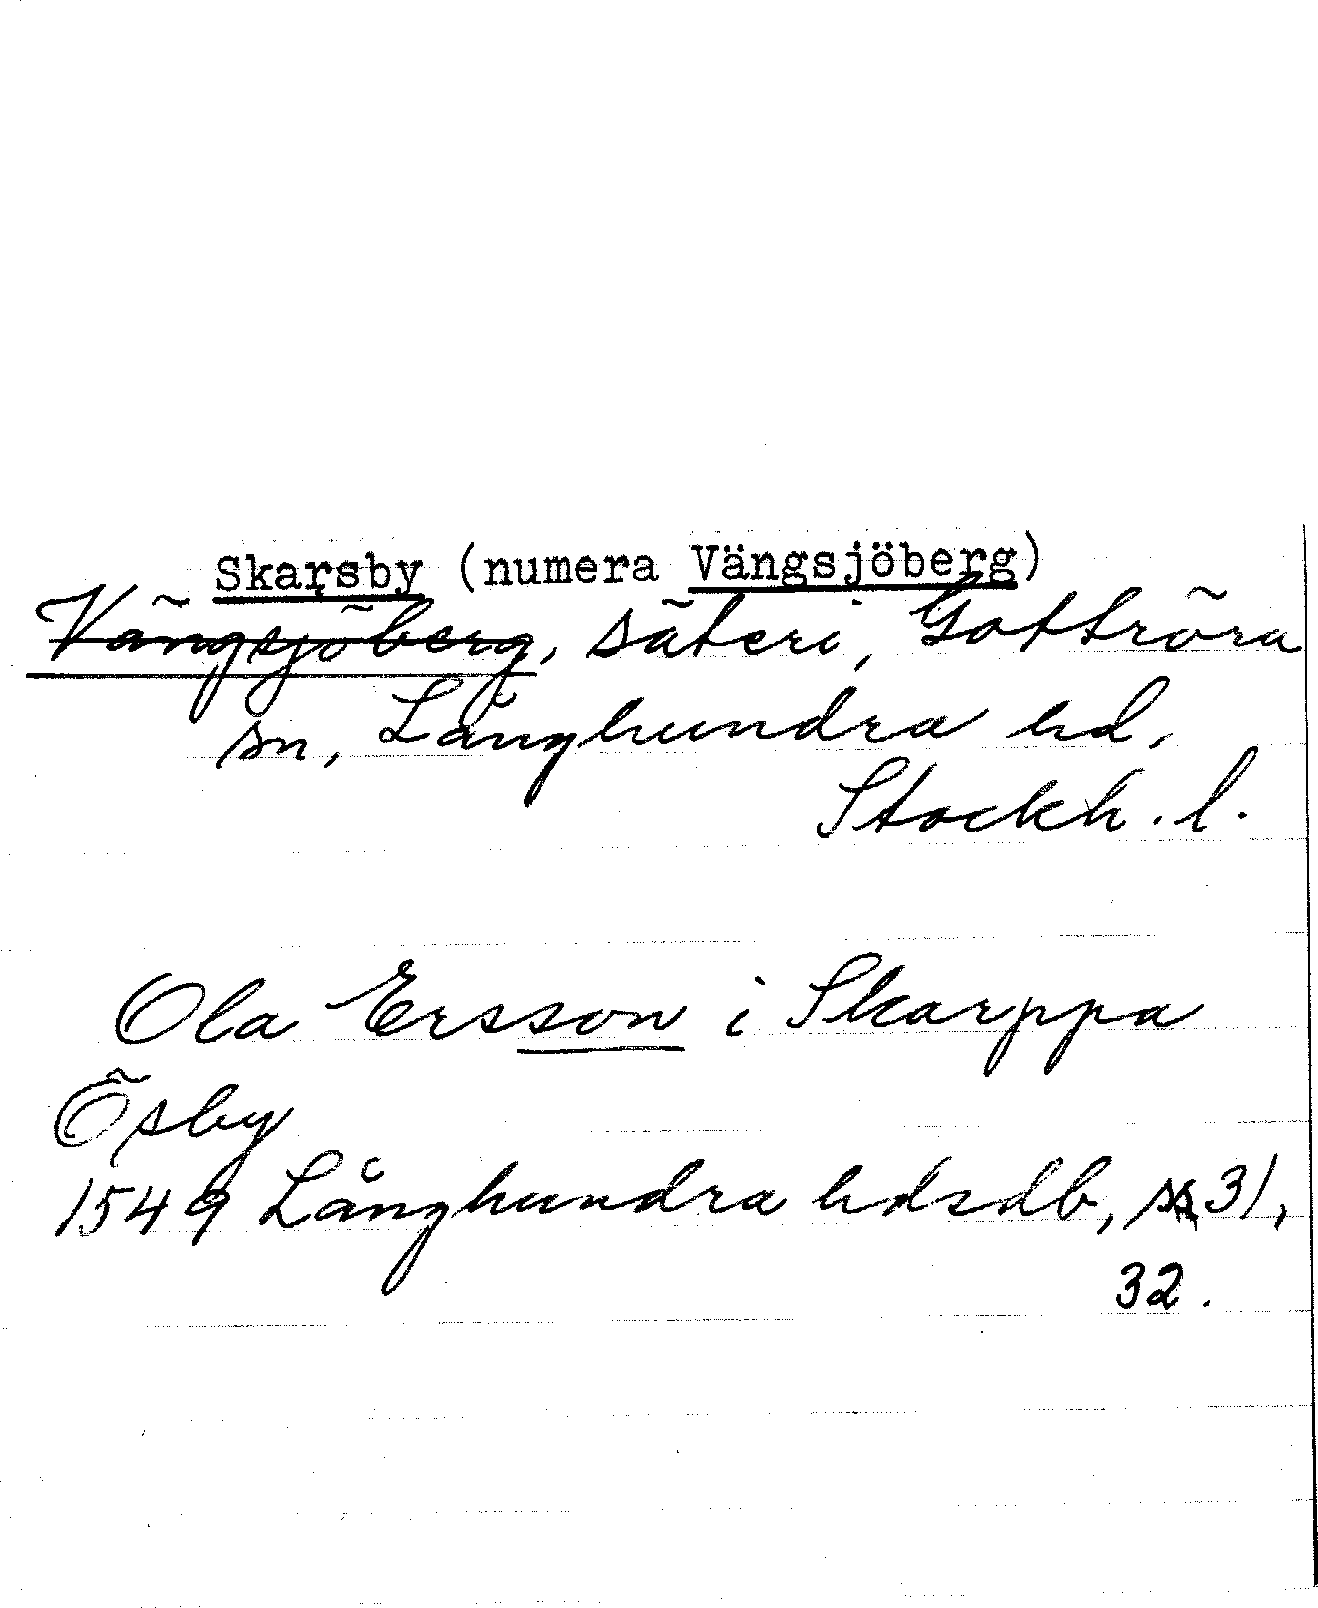 Skarsby (numera Vängsjöberg)
Vängsjöberg, säteri, Gottröra
sn, Långhundra hd,
Stockh. l.
Ola Ersson i Skarppa
Ösby
1549 Långhundra hdsdb, 31,
32.